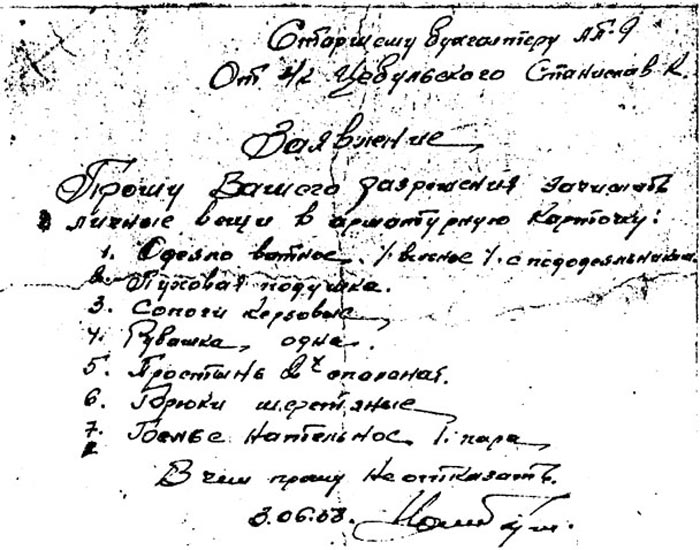 Старшему бухгалтеру ЛП-9
От з/к Цебульского Станислав К.
Заявление
Прошу Вашего разрешения зачислить
личные вещи в арматурную карточку:
1. Одеяло ватное. /. /. с пододеяльником
2. Пуховая подушка.
3. Сопоги керзовые
4. Рубашка, одна.
5. Простынь 2х
6. Брюки шерстяные
7. Белье нательное 1. пара
В чем прошу не отказать.
3.06.53.